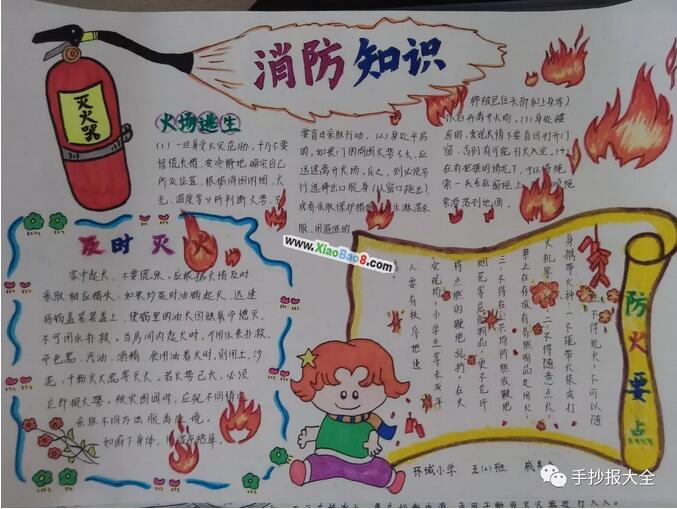 消防知识
灭火器
火场逃生
(1)一旦身受火灾危胁,千万不要
惊慌失措,要冷静地确定自己
所处位置,根据周围的烟、火
光、温度等分析判断火势,不
要盲目采取行动。(2)身处平房
的,如果门的周围火势不大,应
迅速离开火场,反之,则必须另
行选择出口脱身(从窗口跳出),
或者采取保护措施 水淋湿衣
服、用温湿的
棉被包住头部和上身等)
以后再离开火场。(3)身处楼
房的,发现火情不要盲目打开门
窗,否则有可能引火入室。(4)
在有把握的情况下,可以将绳
索一头系在窗框上,
索滑落到地面。
www.XiaoBao8.com
及时灭火
家中起火,不要慌张,应根据火情及时
采取相应措失,如果炒菜时油锅起火,迅速
将锅盖紧紧盖上,使锅里的油火因缺氧而熄灭,
不可用水扑救,当房间内起火时,可用水来扑救,
汽油、酒精、食用油着火时,则用土、沙
泥、干粉灭火器等灭火,若火势已大,必须
立即报火警,被火围困时,应视不同情况
采取不同方法脱离险境。
如俯下身体,
防火要点
不得玩火,不可以随
身携带火种;一不能带火柴或打
火机等。二、不得随意点火,
三、不得在公共场所燃放鞭炮
烟花等危险物品,更不允许
将点燃的鞭炮乱扔。在火
灾现场,小学生等未成年
人要有秩序地逃
环城小学 五(2)班
手抄报大全